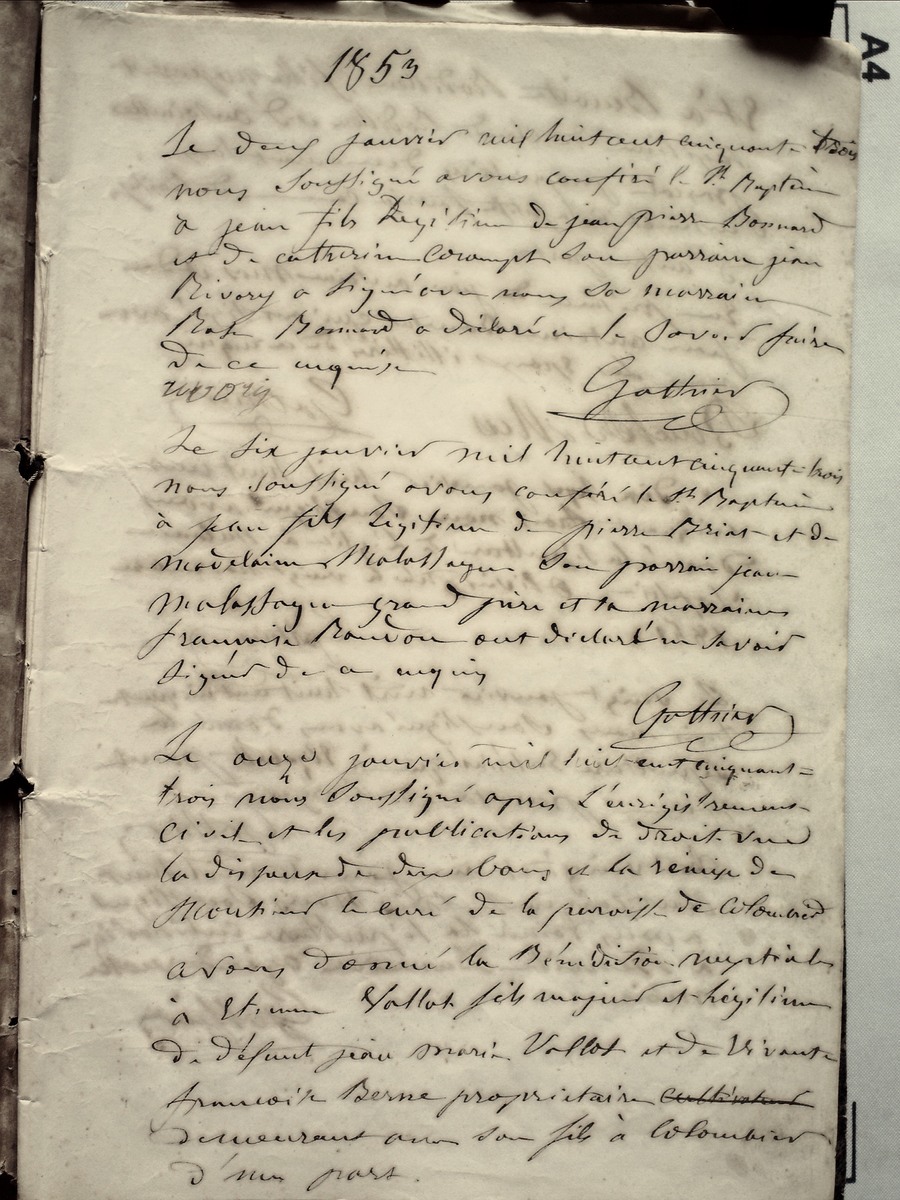 1853
Le deux janvier mil huit cent cinquante trois
nous soussigné avons conféré le St Baptême
à jean fils légitime de jean pierre Bonnard
et de catherine Courampt son parrain jean
Rivory a signé avec nous sa marraine
Bonnard a déclaré ne le savoir faire
de ce enquise
rivory
Gothier
Le six janvier mil huit cent cinquante trois
nous soussigné avons conféré le St Baptême
à jean fils légitime de pierre Briat et de
madelaine Malassagne son parrain jean
Malassagne grand père et sa marraine
francoise Randon ont déclaré ne savoir
signer de ce enquis
Gothier
Le onze janvier mil huit cent cinquante
trois nous soussigné après l'enrégistrement
civil et les publications de droit vue
la dispense de deux bans et la remise de
Monsieur le curé de la paroisse de Colombier
avons donné la Bénédiction nuptiale
à Etienne Vallot fils majeur et légitime
de défunt jean marie Vallot et de vivante
francoise Berne propriétaire cultivateur
demeurant avec son fils à Colombier
d'une part.
A4